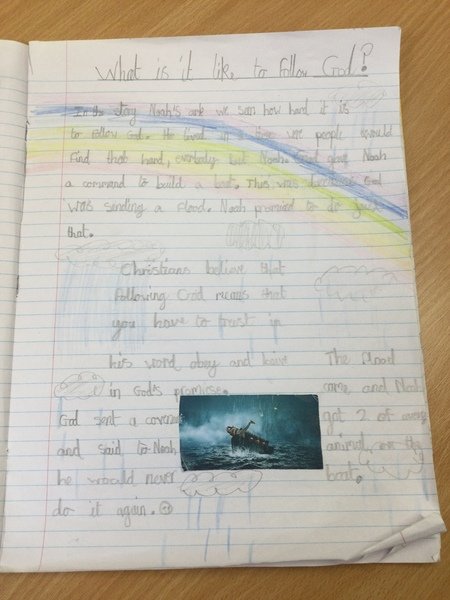 What is it like to follow God?
In the story Noah's ark we seen how hard it is
to follow God. He lived in a time were people would
find that hard, everbody but Noah. God gave Noah
a command to build a boat. This was because God
was sending a flood. Noah promised to do just
that.
Christians believe that
following God means that
you have to trust in
his word obey and have
in God's promise.
God sent a covena
and said to Noah
he would never
do it again.
The flood
came and Noah
got 2 of every
animal on the
boat.